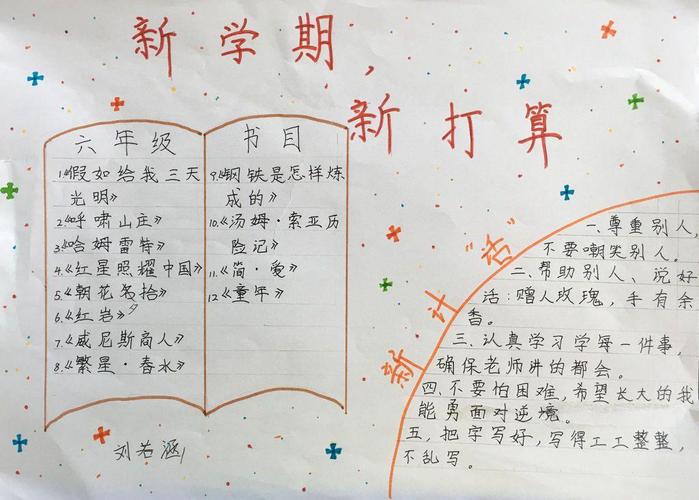 新学期，
新打算
六年级
1.《假如给我三天
光明》
2.《呼啸山庄》
3.《哈姆雷特》
4.《红星照耀中国》
5.《朝花夕拾》
6.《红岩》
7.《威尼斯商人》
8.《繁星·春水》
书目
9.《钢铁是怎样炼
成的》
10.《汤姆·索亚历
险记》
11.《简·爱》
12《童年》
刘若涵
新计“活”
一、尊重别人，
不要嘲类别人。
二、帮助别人、说好
话：赠人玫瑰，手有余
香。
三、认真学习学每一件事，
确保老师讲的都会。
四、不要怕困难，希望长大的我
能勇面对逆境。
五、把字写好，写得工工整整，
不乱写。